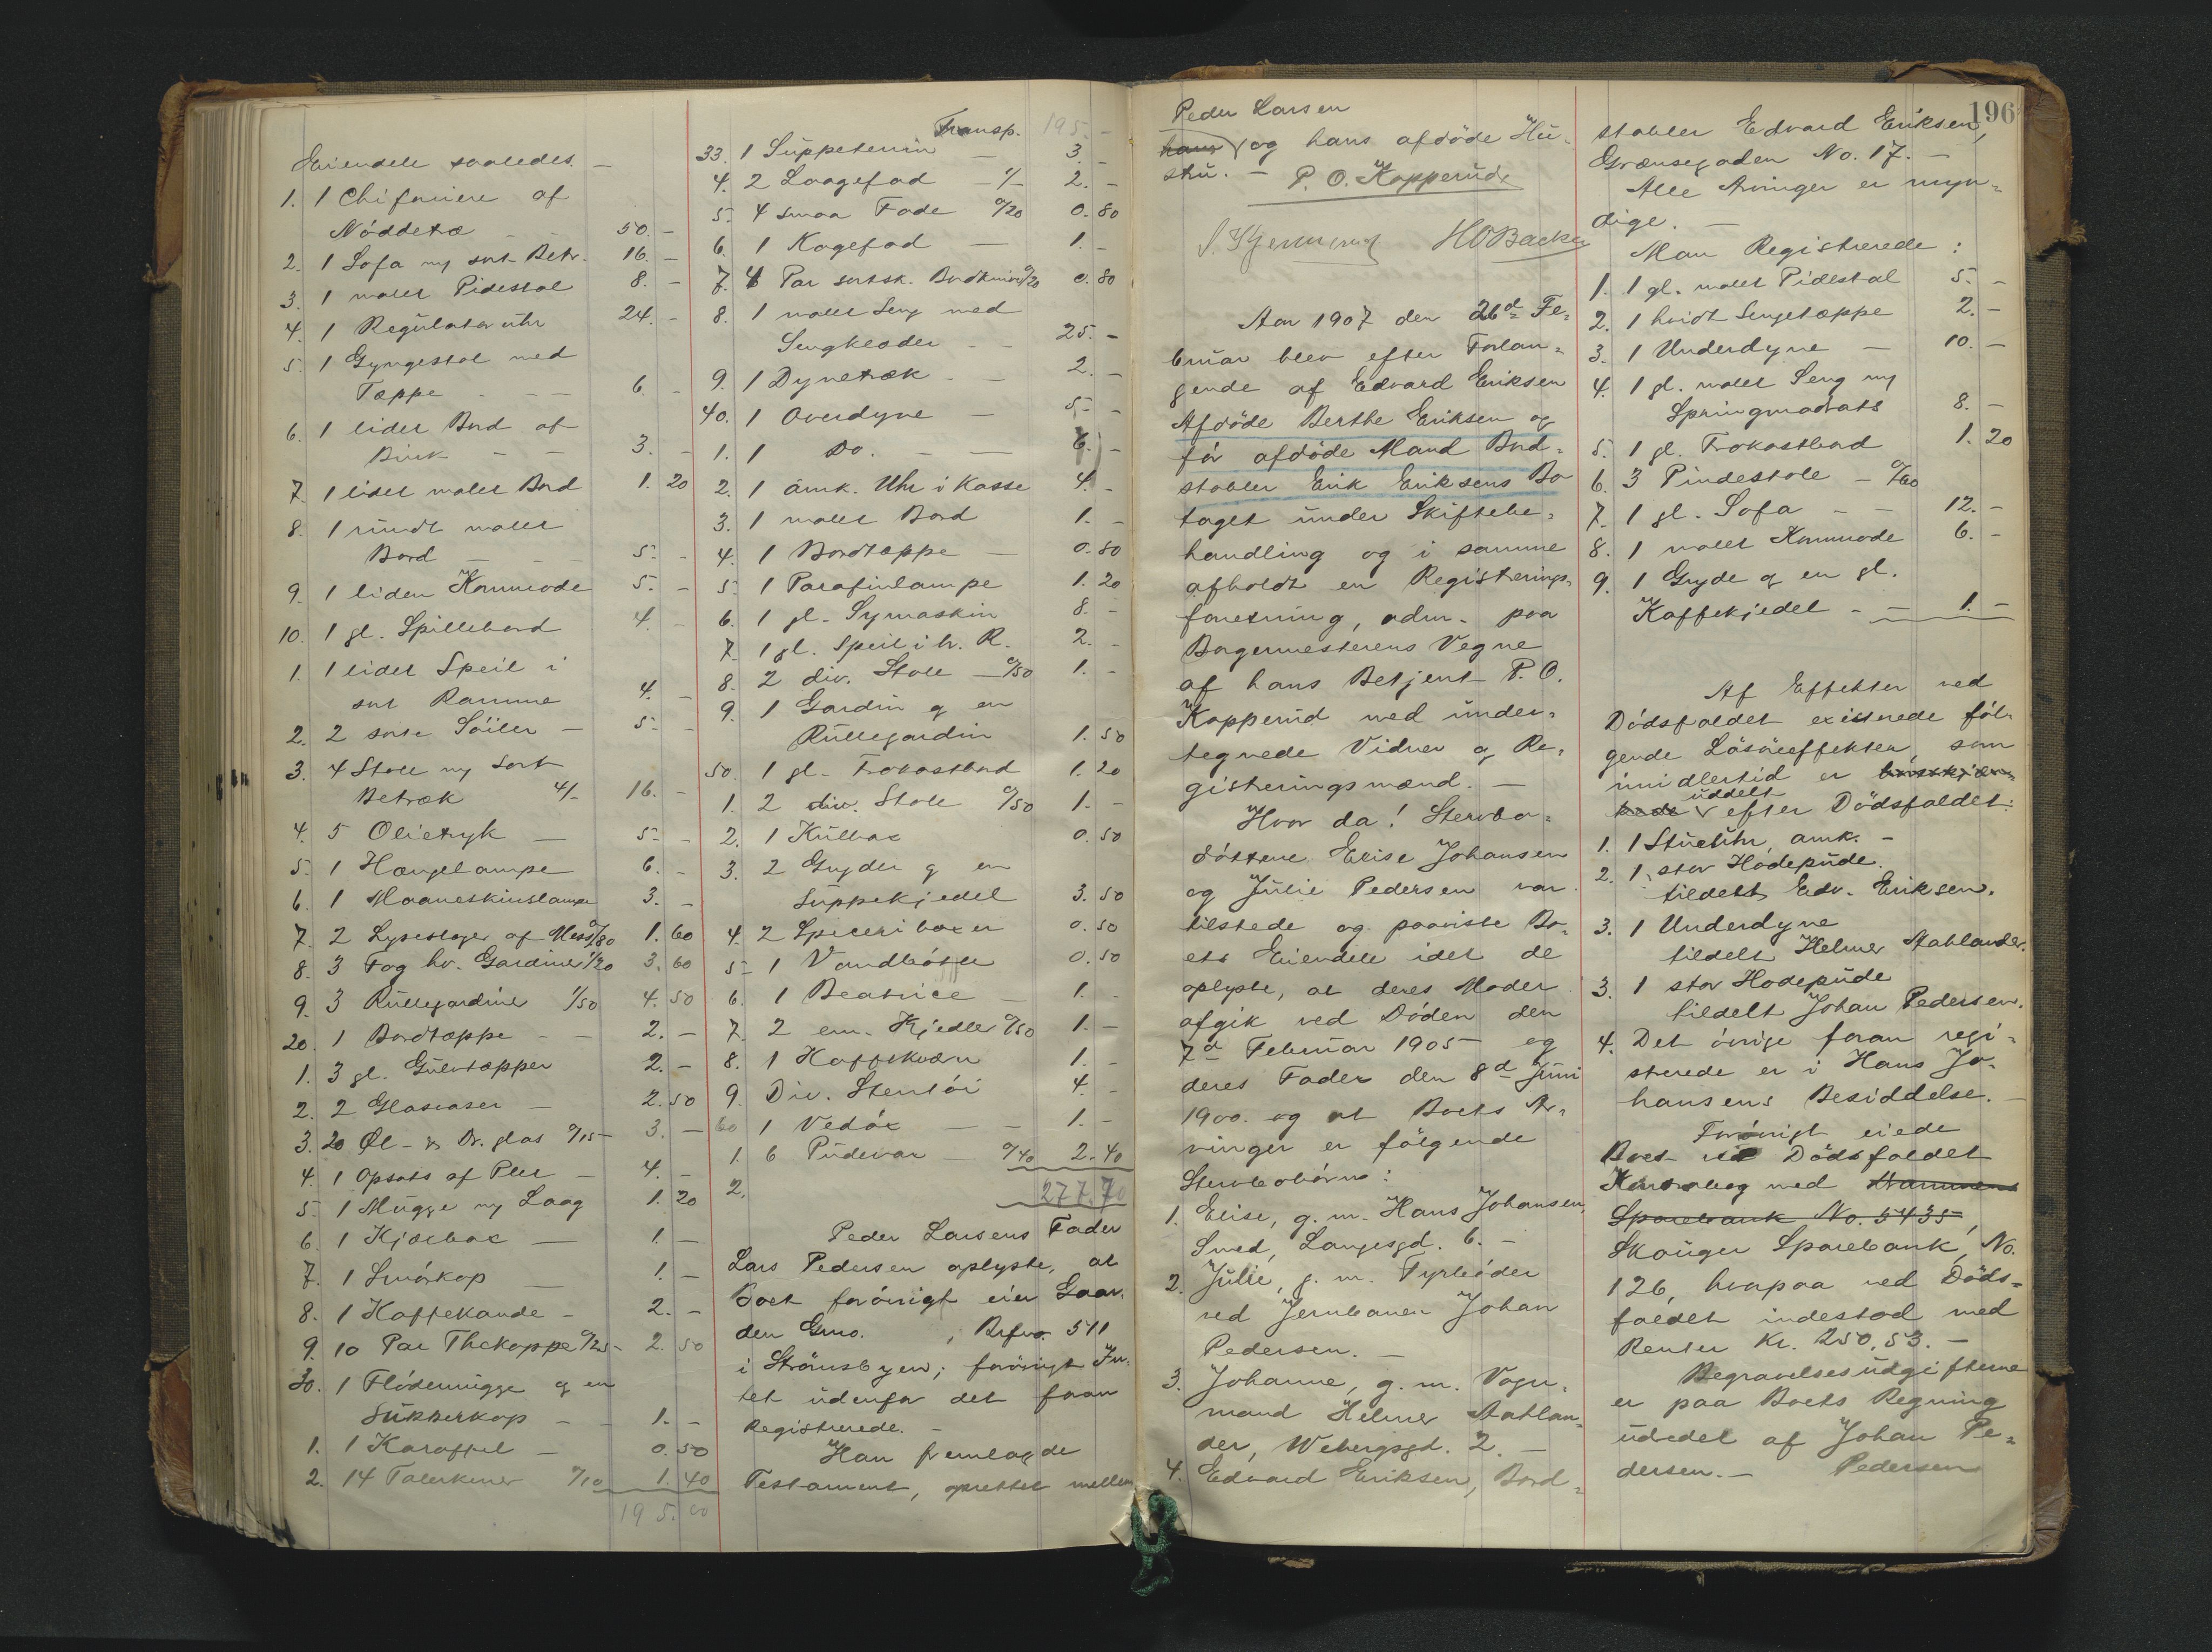 Eiendele saaledes. —
1. 1 Chifoniere af
Nöddetræ — 50. -
2. 1 Sofa m/ sort Betr. 16. -
3. 1 malet Pidestal 8. -
4. 1 Regulator uhr 24. -
5. 1 Gyngestol med
Tæppe - - - 6. -
6. 1 lidet Bord af
Birk - - 3. -
7. 1 lidet malet Bord 1. 20
8. 1 rundt malet
Bord - - - 5. -
9. 1 liden Kommode 5. -
10. 1 gl. Spillebord 4. -
1. 1 lidet Speil i
sort Ramme 4. -
2. 2 sorte Söiler - 5. -
3. 4 Stole m/ Sort
Betræk 4/- 16. -
4. 5 Olietryk — 5. -
5. 1 Hængelampe 6. -
6. 1 Maaneskinslampe 3. -
7. 2 Lysestager af Mess. 0/80 1. 60
8. 3 Fag hv. Gardiner 1/20 3. 60
9. 3 Rullegardiner 1/50 4. 50
20. 1 Bordtæppe - - 2. -
1. 3 gl. Gulvtæpper 2. -
2. 2 Glasvaser — 2. 50
3. 20 Øl- & Dr. glas 0/15 3. -
4. 1 Opsats af Plet — 4. -
5. 1 Mugge m/ Laag 1. 20
6. 1 Kjæxbox — 1. -
7. 1 Smörkop — 1. -
8. 1 Kaffekande - 2. -
9. 10 Par Thekoppe 0/25 2. 50
30. 1 Flödemugge og en
Sukkerkop - - 1. -
1. 1 Karaffel — 0. 50
2. 14 Talerkener 0/10 1. 40
195. 00
Transp. 195. -
33. 1 Suppeterrin — 3. -
4. 2 Laagefad - 1/- 2. -
5. 4 smaa Fade 0/20 0. 80
6. 1 Kagefad — 1. -
7. 4 Par sortsk. Bordknive 0/20 0. 80
8. 1 malet Seng med
Sengklæder - - 25. -
9. 1 Dynetræk - - 2. -
40. 1 Overdyne — 5. -
1. 1 Do. - — 6. -
2. 1 amk. Uhr i Kasse 4. -
3. 1 malet Bord 1. -
4. 1 Bordtæppe — 0. 80
5. 1 Parafinlampe 1. 20
6. 1 gl. Symaskin 8. -
7. 1 gl. Speil i br. R. 2. -
8. 2 div. Stole — 0/50 1. -
9. 1 Gardin og en
Rullegardin 1. 50
50. 1 gl. Frokostbord 1. 20
1. 2 div. Stole 0/50 1. -
2. 1 Kulbox 0. 50
3. 2 Gryder og en
Suppekjedel 3. 50
4. 2 Speceriboxer 0. 50
5. 1 Vandbötte 0. 50
6. 1 Beatrice — 1. -
7. 2 em. Kjedler 0/50 1. -
8. 1 Kaffekværn 1. -
9. Div. Stentöi 4. -
60 1 Vedöx — - 1. -
1. 6 Pudevar — 0/40 2. 40
2. 277. 70
Peder Larsens Fader
Lars Pedersen oplyste, at
Boet forövrigt eier Gaar-
den Gno. , Brfno. 511
i Strömsbyen; forövrigt In-
tet udenfor det foran
Registrerede. -
Han fremlagde
Testament, oprettet mellem
196
Peder Larsen
hans og hans afdöde Hu-
stru. — P. O. Kopperud.
HOBacke
Aar 1907 den 26d= Fe-
bruar blev efter Forlan-
gende af Edvard Eriksen
Afdöde Berthe Eriksen og
för afdöde Mand Bord-
stabler Erik Eriksens Bo
taget under Skiftebe-
handling og i samme
afholdt en Registrerings-
foretning, adm. paa
Borgermesterens Vegne
af hans Betjent P. O.
Kopperud med under-
tegnede Vidner og Re-
gistreringsmænd. —
Hvor da! Stervbo-
döttrene Elise Johansen
og Julie Pedersen var
tilstede og paaviste Bo-
ets Eiendele idet de
oplyste, at deres Moder
afgik ved Döden den
7d= Februar 1905 og
deres Fader den 8d= Juni
1900. og at Boets Ar-
vinger er fölgende
Stervbobörn:
1. Elise, g. m. Hans Johansen,
Smed, Langesgd. 6. -
2. Julie, g. m. Fyrböder
ved Jernbanen Johan
Pedersen. —
3. Johanne, g. m. Vogn-
mand Helmer Aablan-
der, Webergsgd. 2. —
4. Edvard Eriksen, Bord-
stabler Edvard Eriksen,
Grænsegaden No. 17. —
Alle Arvinger er myn-
dige. —
Man Registrerede :
1. 1 gl. malet Pidestal 5. -
2. 1 hvidt Sengetæppe 2. -
3. 1 Underdyne — 10. -
4. 1 gl. malet Seng m/
Springmadrats 8. -
5. 1 gl. Frokostbord 1. 20
6. 3 Pindestole - 0/60
7. 1 gl. Sofa - - 12. -
8. 1 malet Kommode 6. -
9. 1 Gryde og en gl.
Kaffekjedel - - 1. -
Af Effekter ved
Dödsfaldet existerede föl-
gende Lösöreeffekter, som
imidlertid er
uddelt efter Dödsfaldet:
1. 1 Stueuhr, amk. -
2. 1 stor Hodepude.
tildelt Edv. Eriksen.
3. 1 Underdyne
tildelt Helmer Aablander.
3. 1 stor Hodepude
tildelt Johan Pedersen.
4. Det övrige foran regi-
strerede er i Hans Jo-
hansens Besiddelse. —
Forövrigt eiede
Boet ved Dödsfaldet
Kontrabog med Drammens
Sparebank No. 5435,
Skouger Sparebank, No.
126, hvorpaa ved Döds-
faldet indestod med
Renter Kr. 250,53. —
Begravelsesudgifterne
er paa Boets Regning
udredet af Johan Pe-
dersen. — Pedersen